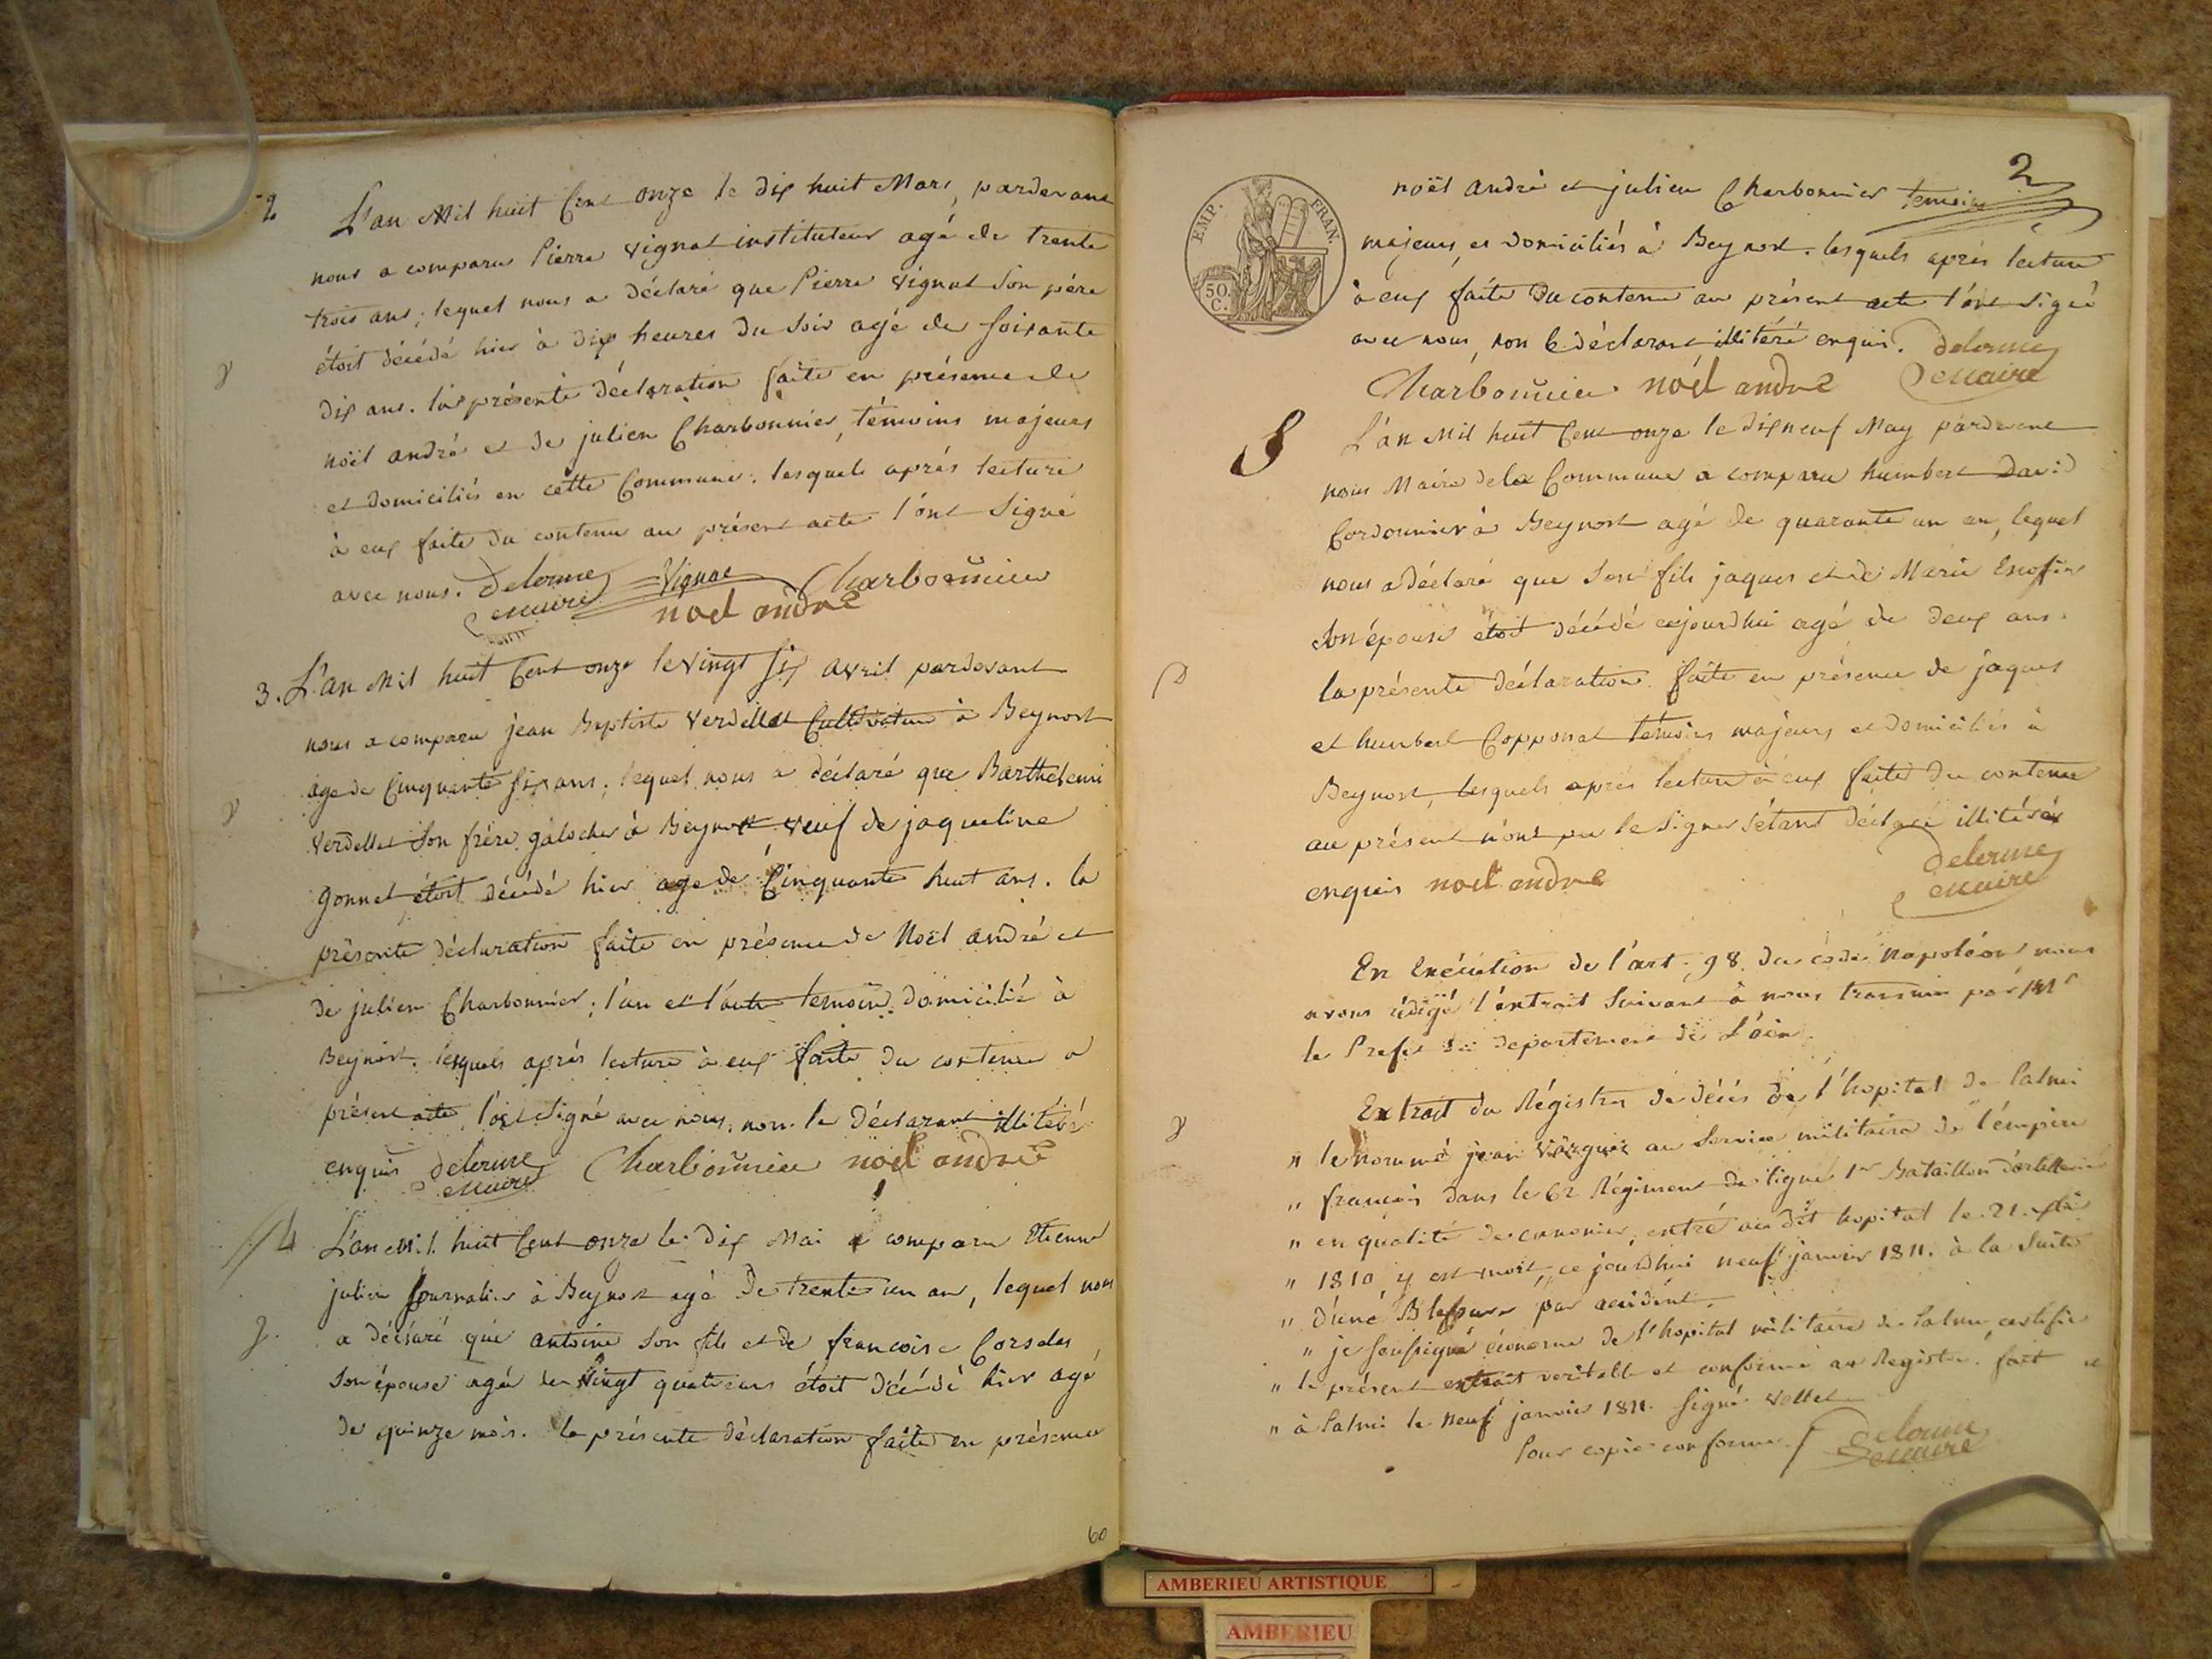 2
L'an Mil huit Cent onze le dix huit Mars, pardevant
nous a comparu Pierre Vignat instituteur agé de trente
trois ans; lequel nous a déclaré que Pierre Vignat Son pére
étoit décédé hier à dix heures du Soir agé de Soixante
dix ans. la présente déclaration faite en présence de
noël andré et de julien Charbonnier, témoins majeurs
et domiciliés en cette Commune; lesquels aprés lecture
à eux faite du contenu au présent acte l'ont Signé
avec nous. Delorme Vignat Charbonnier
maire noel andre
3. L'an Mil huit Cent onze le vingt Six avril pardevant
nous a comparu jean Baptiste Verdellet Cultivateur à Beynost
age de Cinquante Six ans; lequel nous a déclaré que Barthelemi
Verdellet Son frére galocher à Beynost veuf de jaqueline
gonnet étoit décédé hier age de Cinquante huit ans. la
présente déclaration faite en présence de Noël andré et
de julien Charbonnier; l'un et l'autre temoins domiciliés à
Beynost. lesquels aprés lecture à eux faite du contenu a
présent acte l'ont Signé avec nous, non le Déclarant illitéré
enquis delorme Charbonnier noel andre
maire
4 L'an Mil huit Cent onze le dix Mai a comparu Etienne
julien journalier à Beynost agé de trente un an, lequel nous
a déclaré que antoine Son fils et de francoise
Son épouse agée de Vingt quatre ans étoit décédé hier agé
de quinze mois. la présente déclaration faite en présence
60
2
EMP. FRAN.
50
C.
noël andré et julien Charbonnier temoins
majeurs, et domiciliés à Beynost. lesquels aprés lecture
à eux faite du contenu au présent acte l'ont Signé
avec nous, non le déclarant illitéré enquis. Delorme
Charbonnier noël andre maire
5
L'an Mil huit Cent onze le dix neuf May pardevant
nous Maire de la Commune a comparu humbert David
Cordonnier à Beynost agé de quarante un an, lequel
nous a déclaré que Son fils jaques et de Marie
Son épouse étoit décédé aujourdhui agé de deux ans.
la présente déclaration faite en présence de jaques
et humbert Copponat témoins majeurs et domiciliés à
Beynost, lesquels aprés lecture à eux faite du contenu
au présent n'ont pu le Signer S'étant déclaré illitérés
enquis noel andre delorme
maire
En Exécution de l'art. 98. du code Napoléon nous
avons rédigé l'extrait Suivant à nous transmis par Mr
le Prefet du département de L'ain.
Extrait du Régistre de décés de l'hopital de Palma
" le nommé jean au Service militaire de l'empire
" francois dans le 62 Régiment de ligne 1er Bataillon d'artillerie
" en qualité de canonier, entré au dit hopital le 21
" 1810 y est mort, ce jourdhui neuf janvier 1811. à la Suite
" d'une Blessure par accident.
" je Soussigné économe de l'hopital militaire de Palma, certifie
" le présent extrait veritable et conforme au Registre. fait
" à Palma le Neuf janvier 1811. Signé
Pour copie conforme Delorme
maire
AMBERIEU ARTISTIQUE
AMBERIEU